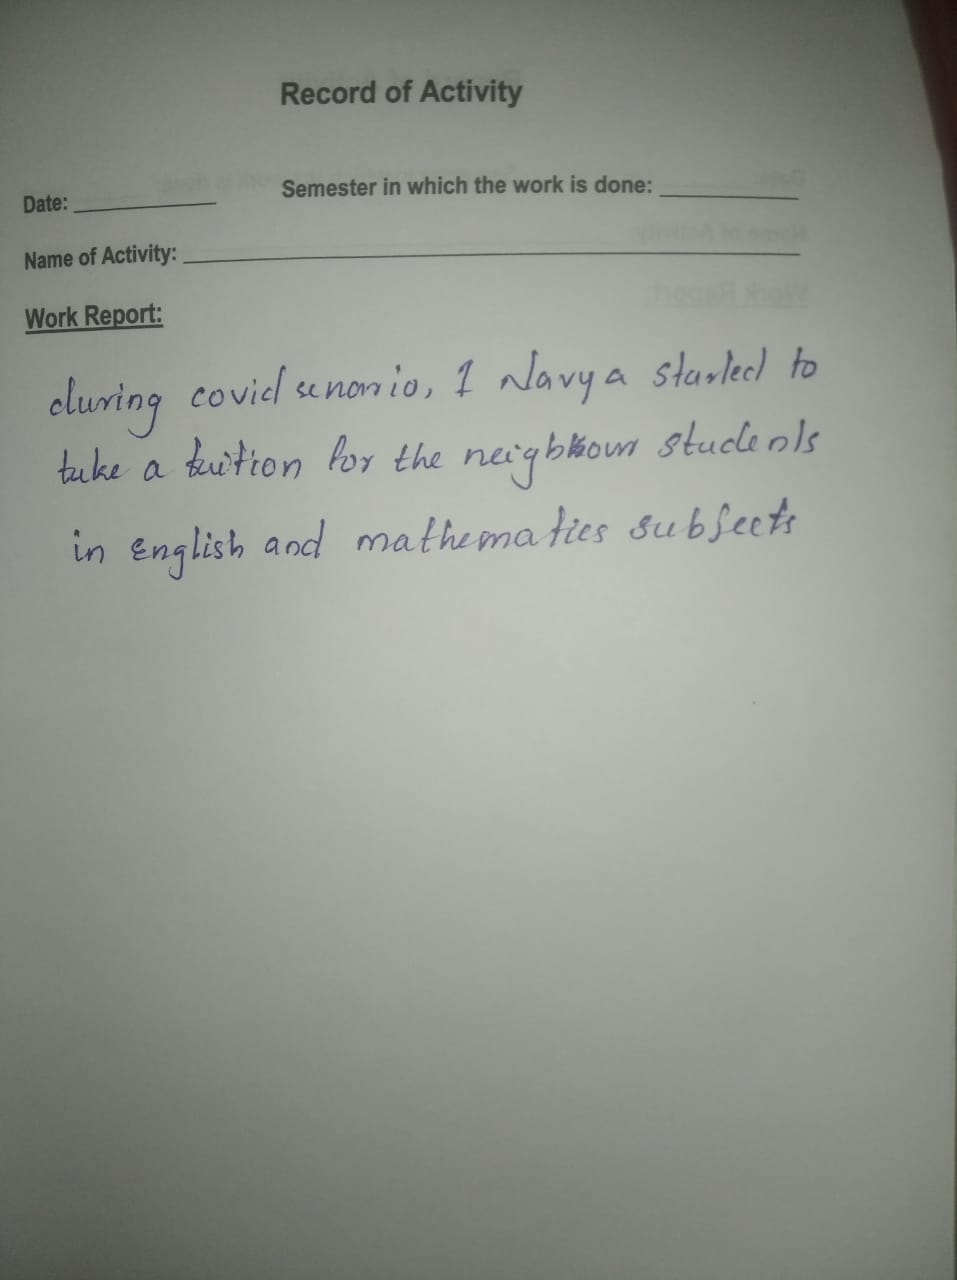 Record of Activity
Date: __________ Semester in which the work is done: __________
Name of Activity: __________
Work Report:
during covid senario, I Navya started to
take a tuition for the neighbour students
in English and mathematics subjects